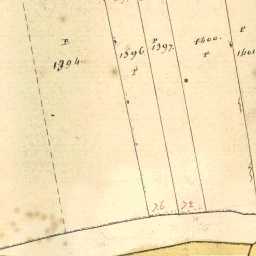 P
1394
1396
P
P
1397.
1400.
P
P
1401
76
72